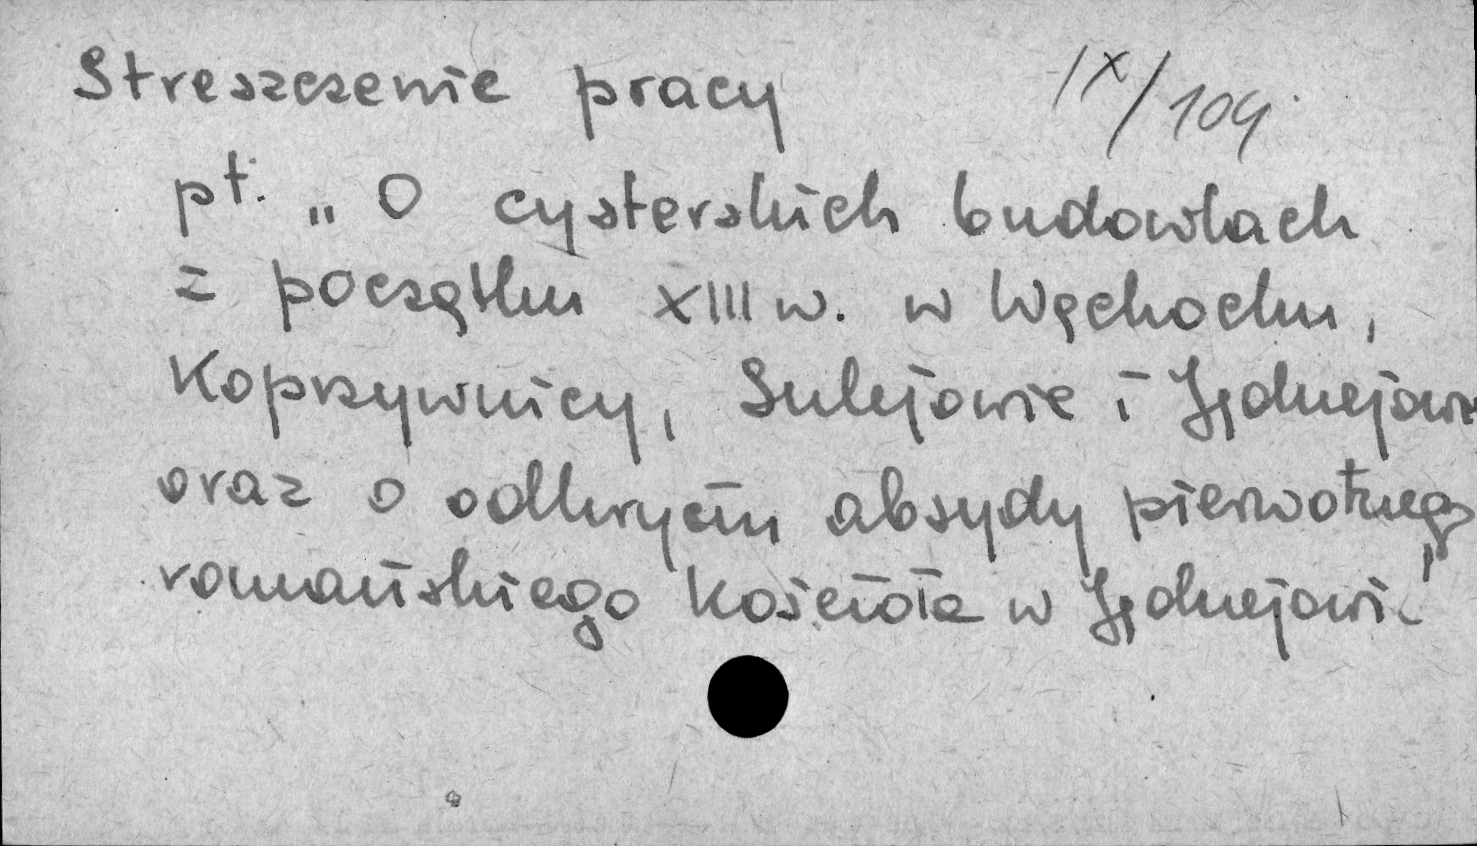 Streszczenie pracy IX/104
pt. „O cysterskich budowlach
z początku XIII w. w Wąchocku,
Koprzywnicy, Sulejowie i Jędrzejowie
oraz o odkryciu absydy pierwotnego
romańskiego kościoła w Jędrzejowie"